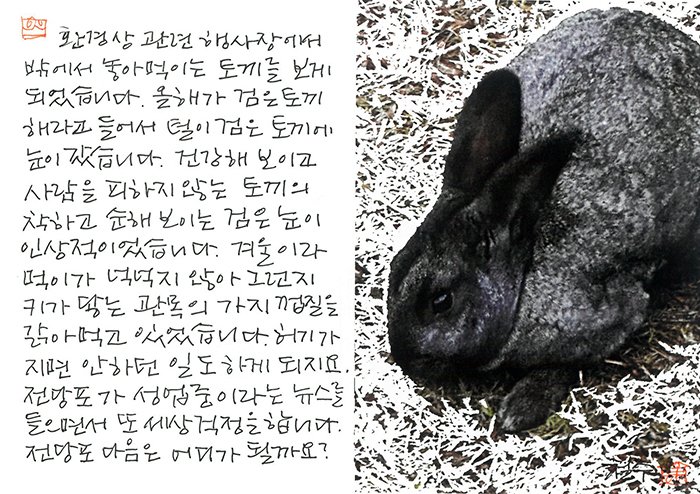 환경상 관련 행사장에서
밖에서 놓아먹이는 토끼를 보게
되었습니다. 올해가 검은토끼
해라고 들어서 털이 검은 토끼에
눈이 갔습니다. 건강해 보이고
사람을 피하지 않는 토끼의
착하고 순해 보이는 검은 눈이
인상적이었습니다. 겨울이라
먹이가 넉넉지 않아 그런지
키가 닿는 관목의 가지 껍질을
갉아먹고 있었습니다. 허기가
지면 안하던 일도 하게 되지요.
전당포가 성업중이라는 뉴스를
들으면서 또 세상걱정을 합니다.
전당포 다음은 어디가 될까요?